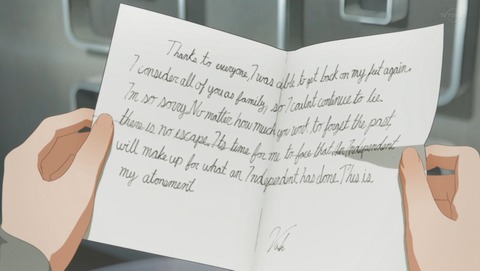 Thanks to everyone, I was able to get back on my feet again.
I consider all of you as family, so I could't continue to lie.
I'm so sorry. No matter how much you want to forget the past,
there is no escape. It's time for me to face that the Independent
will make up for what an Independent has done. This is
my atonement